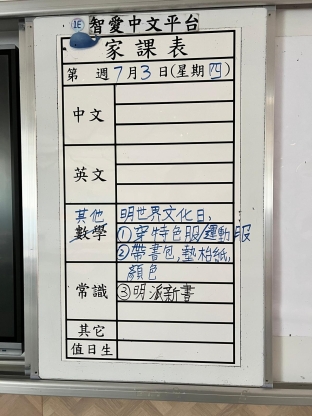 1E 智愛中文平台
家課表
第 週7月3日(星期四)
中文
英文
其他 明世界文化日,
數學 ①穿特色服/運動服
②帶書包,墊枱紙,
顏色
常識 ③明派新書
其它
值日生